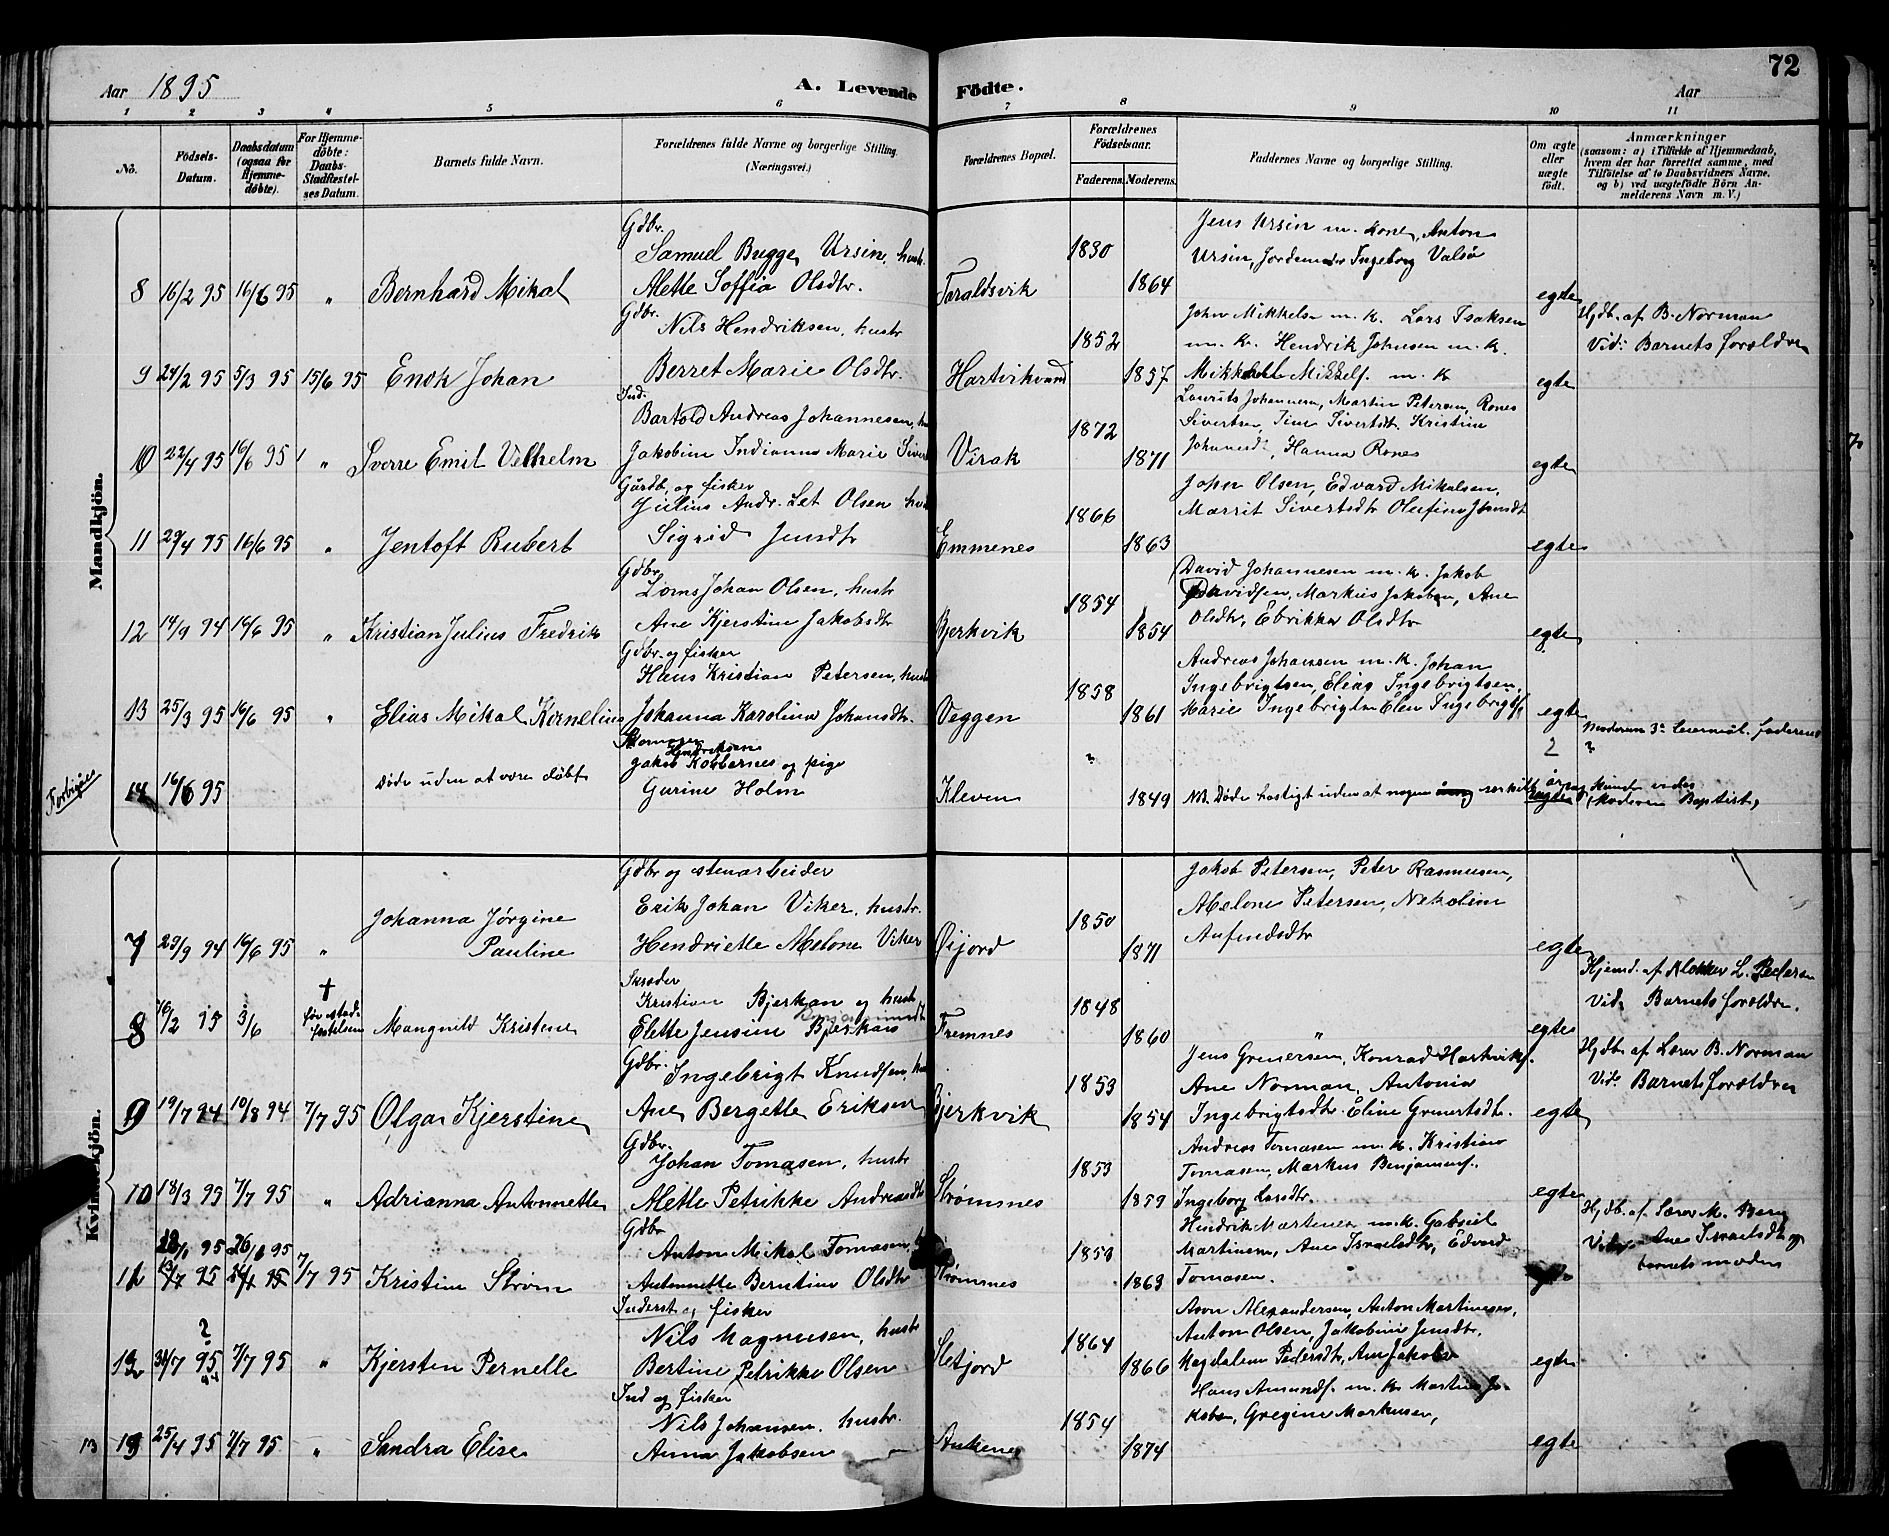 Aar 1895
A. Levende Fødte.
Aar
72
1 2 3 4 5 6 7 8 9 10 11
No.
Fødsels-Datum.
Daabsdatum (ogsaa for Hjemmedøbte).
For Hjemmedøbte: Daabs-Stadfæstelses Datum.
Barnets fulde Navn.
Forældrenes fulde Navne og borgerlige Stilling. (Næringsvei.)
Forældrenes Bopæl.
Forældrenes Fødselsaar.
Faderens. Moderens.
Faddernes Navne og borgerlige Stilling.
Om ægte eller uægte født.
Anmærkninger (saasom: a) i Tilfælde af Hjemmedaab, hvem der har forrettet samme, med Tilføielse af to Daabsvidners Navne, og b) ved uægtefødte Børn Anmelderens Navn m. V.)
Mandkjøn.
Gdbr.
Samuel Bugge Ursin, hustr.
1830
Jens Ursin m. kone, Anton
Ursin, Jordemoder Ingeborg Valsø
8 16/2 95 16/6 95 " Bernhard Mikal
Alette Soffie Olsdtr.
Taraldsvik 1864 egte
Gdbr.
Nils Hendriksen, hustr
1852
John Mikkelsen m. k. Lars Isaksen
m. k. Hendrik Johnsen m. k.
Hjdb. af B. Norman
Vid: Barnets forældre
9 24/2 95 5/3 95 15/6 95 Enok Johan
Berret Marie Olsdtr.
Hartvikvand 1857 Mikkel Mikkels. m. k egte
Ind.
Bartold Andreas Johannesen,
1872
Laurits Johannesen, Martin Petersen, Rones
Sivertsen, Sivertsdtr Kristine
10 22/4 95 16/6 95 " Sverre Emil Velhelm
Jakobine Indianna Marie Sivert
Virak 1871 Johansdtr, Hanna Rones egte
Gårdb. og fisker
Julius Andr. Let Olsen
1866
John Olsen, Edvard Mikalsen,
Marrit Sivertsdtr Olufine Jensdtr
11 29/4 95 16/6 95 " Jentoft Rubert
Sigrid Jensdtr
Emmenes 1863 egte
Gdbr.
Johan Olsen, hustr
1854
David Johannesen m. k. Jakob
Davidsen, Markus Jakobsen, Ane
12 14/9 94 16/6 95 " Kristian Julius Fredrik
Ane Kjerstine Jakobsdtr
Bjerkvik 1854 Olsdtr, Ebrikke Olsdtr egte
Gdbr. og fisker
Hans Kristian Petersen, hustr
1858
Andreas Johansen m. k. Johan
Ingebrigtsen, Elias Ingebrigtsen,
13 25/3 95 16/6 95 " Elias Mikal Kornelius
Johanna Karolina Johansdtr.
Veggen 1861 Marie Ingebrigtsen Elen Ingebrigts. egte
Forbigåes
Skomager
Hendriksen
Jakob Kobbernes og pige
" 2 Moderens 3. Leiermål. faderens "
14 16/6 95 Døde uden at være døbt
Gurine Holm
Kleven 1849 NB. Døde hastigt uden at nogen særskilt årsag kunde vides
uegte (Moderen Baptist)
Kvindekjøn.
Gdbr og stenarbeider
Erik Johan Viker, hustr.
1850
Jakob Petersen, Peter Rasmusen,
Abelone Petersen, Nikoline
7 29/9 94 16/6 95 " Johanna Jørgine
Pauline
Hendriette Abelone Viker
Øijord 1871 Anfindsdtr egte
Skræder
Kristian Bjerkan og hustr
1848
Hjemd. af Klokker L. Pedersen
Vid. Barnets forældre.
8 16/2 95 3/6 † før stadfestelsen Mangnild Kristene
Elette Jensine Bjerkan
Fremnes 1860 " egte
Gdbr.
Ingebrigt Knudsen,
1853
Jens Grenersen, Konrad Hartviks.
Ane Norman, Antonia
Hjdb. af Lærer B. Norman
Vid. Barnets forældre
9 19/7 94 10/8 94 7/7 95 Olga Kjerstine
Ane Bergette Eriksen
Bjerkvik 1854 Ingebrigtsdtr Eline Grenertsdtr. egte
Gdbr.
Johan Tomasen, hustr
1853
Andreas Tomasen m. k. Kristian
Tomasen, Markus Benjamins.
10 18/3 95 7/7 95 " Adrianna Antonnette
Alette Petrikke Andreasdtr
Strømsnes 1859 Ingeborg Larsdtr. egte
Gdbr
Anton Mikal Tomasen,
1859
Hendrik Martenesen m. k. Gabriel
Martinesen, Ane Israelsdtr, Edvard
Hjdb. af Lærer M. Berg
Vid. Ane Israelsdtr og
barnets moder
11 7/7 95 Kristine Strøm
Antonnette Berntine Olsdtr
Strømsnes 1863 Tomasen.
Inderst og fisker
Nils Magnusen, hustr
1864
Aron Alexandersen, Anton Martinesen,
Anton Olsen, Jakobine Jensdtr,
12 7/7 95 " Kjersten Pernelle
Bertine Petrikke Olsen
Sletjord 1866 Magdalena Pedersdtr, Ane Jakobs egte
Ind og fisker
Nils Johansen, hustr.
1854
Hans Amunds. m. k. Martin Jakobsen, Gregine Markusen,
13 13 25/4 95 7/7 95 " Sandra Elise
Anna Jakobsen
Ankenes 1874 egte